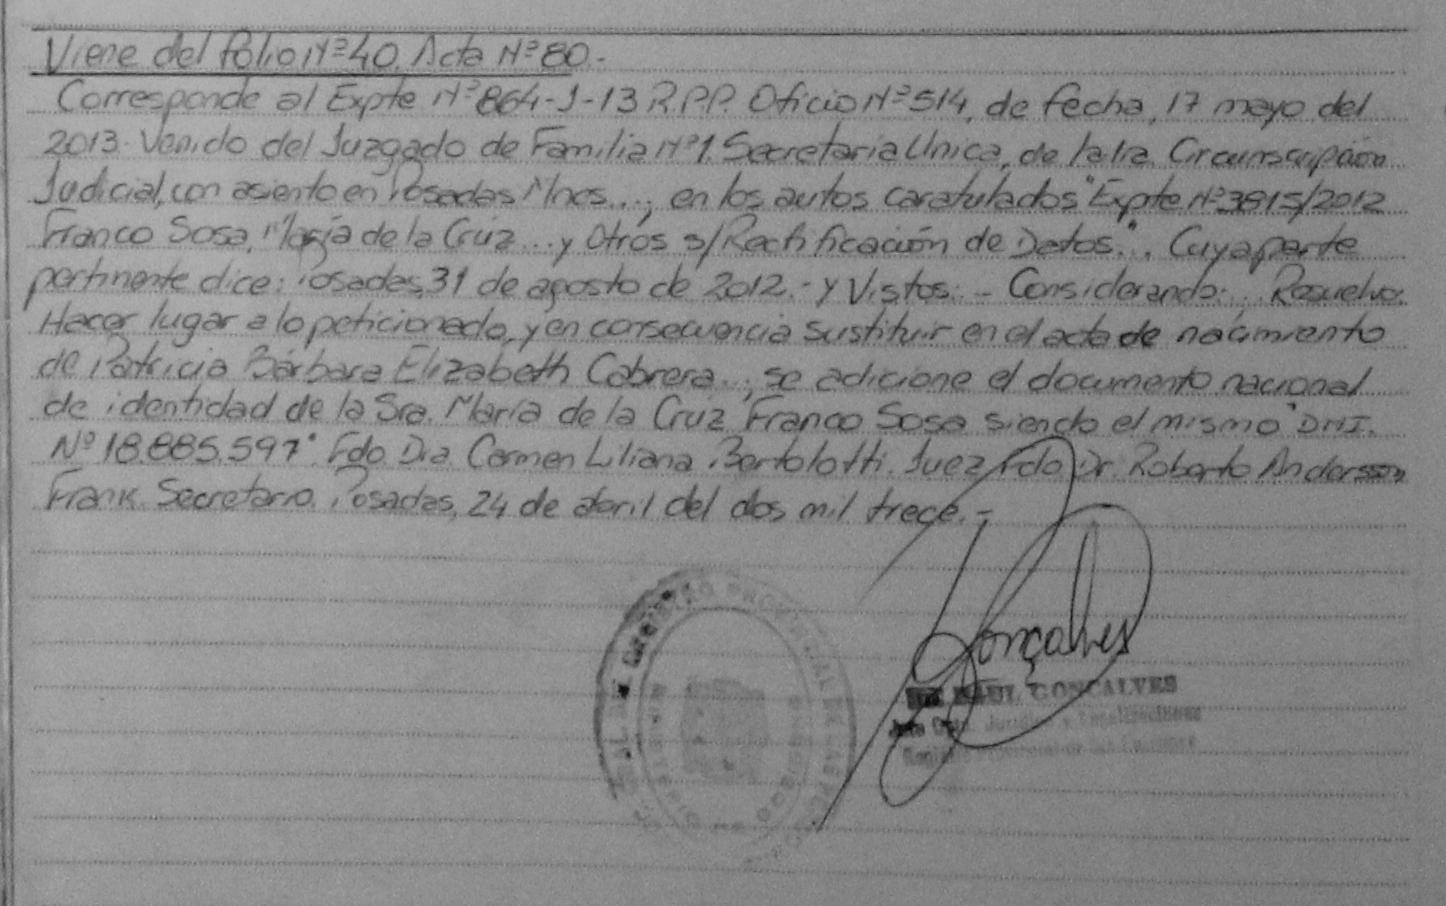 Viene del folio Nº 40. Acta Nº 80.-
Corresponde al Expte Nº 864-J-13 R.P.P. Oficio Nº 514, de fecha, 17 mayo del
2013. Venido del Juzgado de Familia Nº 1. Secretaria Unica, de la 1ra Circunscripción
Judicial, con asiento en Posadas Mnes..., en los autos caratulados "Expte Nº 3815/2012
Franco Sosa, María de la Cruz... y Otros s/Rectificación de Datos.".. Cuya parte
pertinente dice: Posadas, 31 de agosto de 2012.- y Vistos:.- Considerando:.. Resuelvo:
Hacer lugar a lo peticionado, y en consecuencia sustituir en el acta de nacimiento
de Patricia Bárbara Elizabeth Cabrera..; se adicione el documento nacional
de identidad de la Sra. María de la Cruz Franco Sosa siendo el mismo "DNI.
Nº 18.885.597". Fdo. Dra. Carmen Liliana Bertolotti. Juez. Fdo Dr. Roberto Andersson
Frank. Secretario. Posadas, 24 de abril del dos mil trece.-
Gonçalves
RAUL GONCALVES
Registro Provincial de las Personas
REGISTRO PROVINCIAL DE LAS PERSONAS